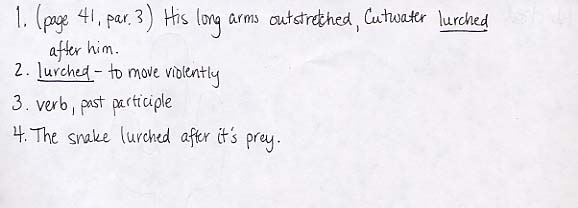 1. (page 41, par. 3) His long arms outstretched, Cutwater lurched
after him.
2. lurched - to move violently
3. verb, past participle
4. The snake lurched after it's prey.